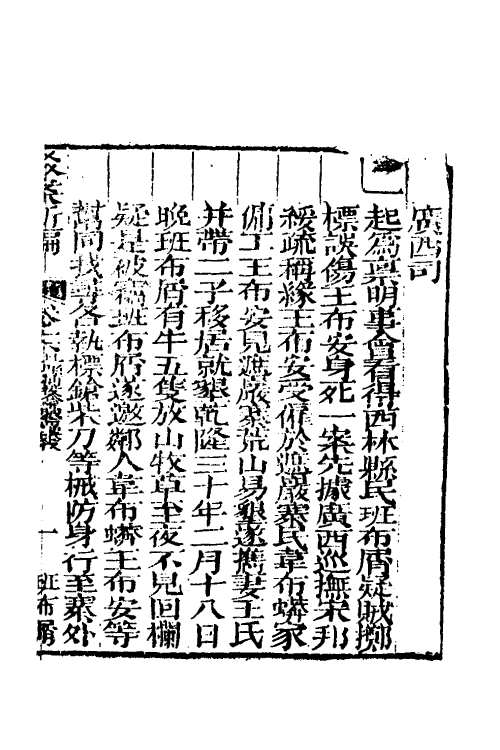 廣西司
一
起為稟明事會看得西林縣民班布屑疑賊擲
標誤傷王布安身死一案先據廣西巡撫宋邦
綏疏稱緣王布安受僱於遮嚴寨民韋布蟒家
傭工王布安見遮嚴寨荒山易墾遂攜妻王氏
并帶二子移居就墾乾隆三十年二月十八日
晚班布屑有牛五隻放山牧草至夜不見回欄
疑是被竊班布屑遂邀鄰人韋布蟒王布安等
幫同找尋各執標鎗柴刀等械防身行至寨外
駁案新編 卷 一 班布屑